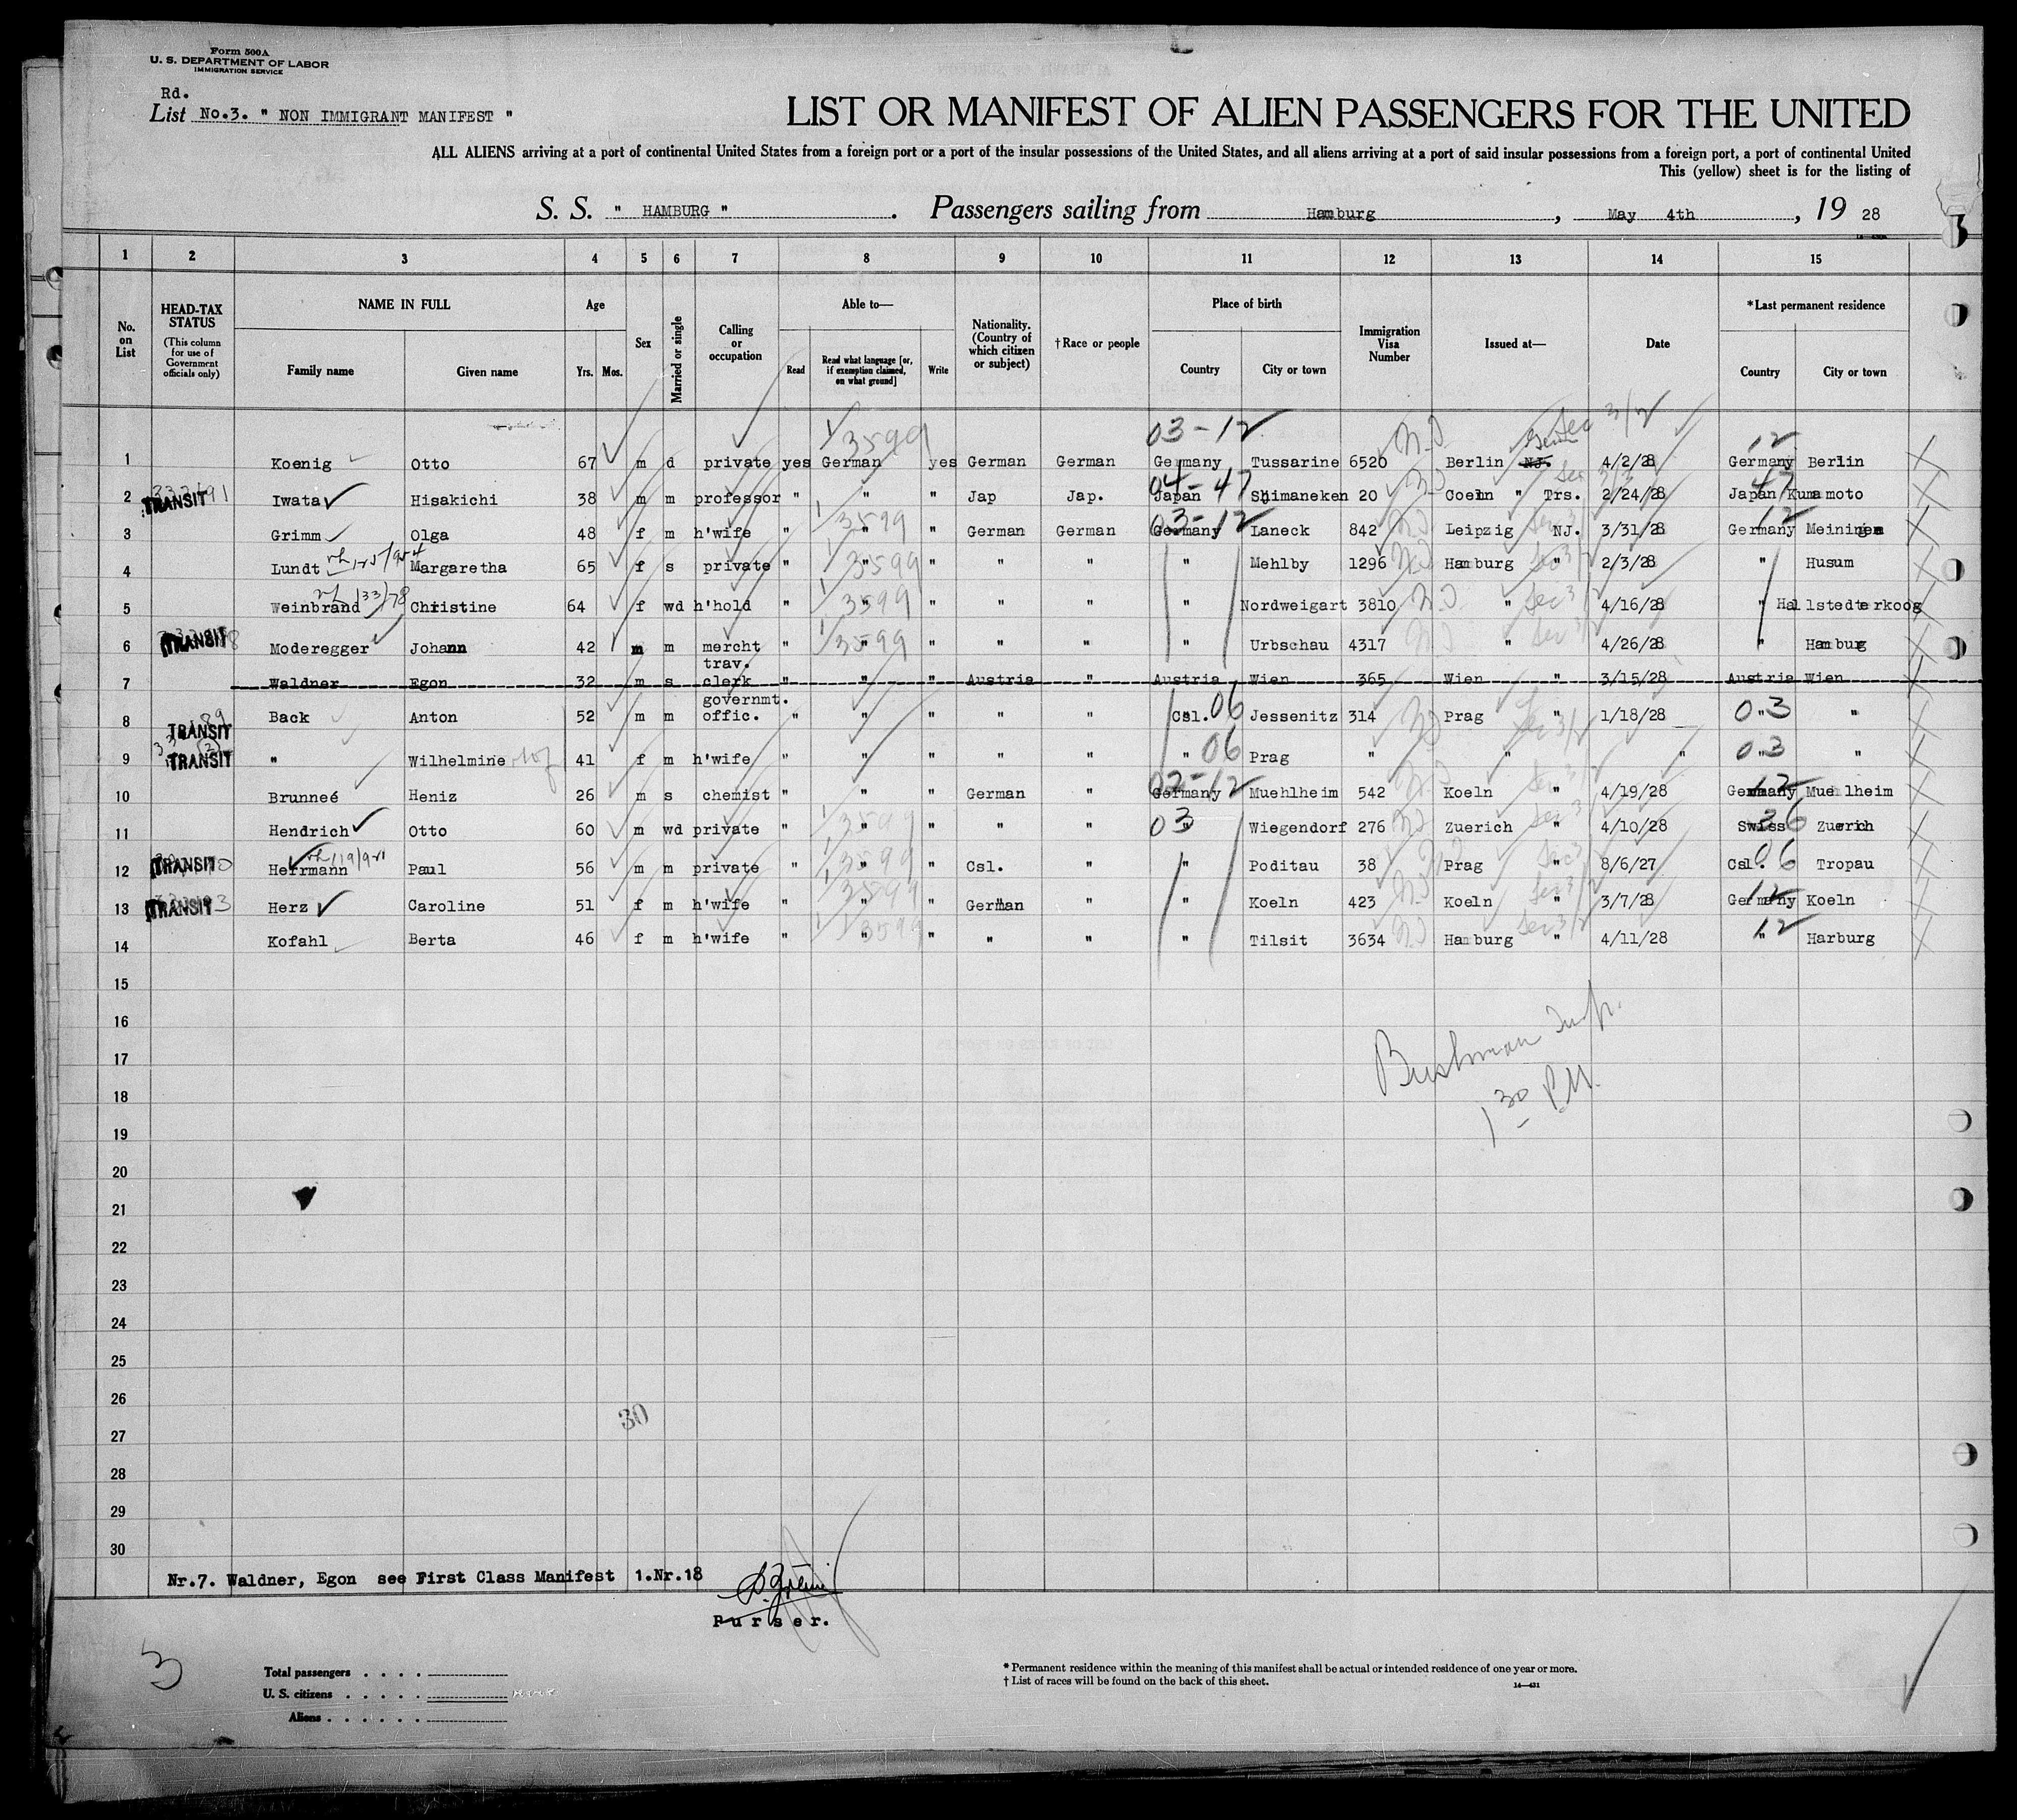 Form 500A
U. S. DEPARTMENT OF LABOR
IMMIGRATION SERVICE
Rd.
List No.3. " NON IMMIGRANT MANIFEST "
LIST OR MANIFEST OF ALIEN PASSENGERS FOR THE UNITED
ALL ALIENS arriving at a port of continental United States from a foreign port or a port of the insular possessions of the United States, and all aliens arriving at a port of said insular possessions from a foreign port, a port of continental United
This (yellow) sheet is for the listing of
S. S. " HAMBURG " . Passengers sailing from Hamburg , May 4th , 19 28
1 2 3 4 5 6 7 8 9 10 11 12 13 14 15
No. on List
HEAD-TAX STATUS (This column for use of Government officials only)
NAME IN FULL Family name Given name
Age Yrs. Mos.
Sex
Married or single
Calling or occupation
Able to— Read Read what language [or, if exemption claimed, on what ground] Write
Nationality. (Country of which citizen or subject)
†Race or people
Place of birth Country City or town
Immigration Visa Number
Issued at—
Date
*Last permanent residence Country City or town
03-12 12
1 Koenig Otto 67 m d private yes German 3599 yes German German Germany Tussarine 6520 Berlin NJ. 4/2/28 Germany Berlin
04-47 47
2 TRANSIT Iwata Hisakichi 38 m m professor " " " Jap Jap. Japan Shimaneken 20 Coeln " Trs. 2/24/28 Japan Kumamoto
03-12 12
3 Grimm Olga 48 f m h'wife " " 3599 " German German Germany Laneck 842 Leipzig NJ. 3/31/28 Germany Meiningen
4 Lundt Margaretha 65 f s private " " 3599 " " " " Mehlby 1296 Hamburg " 2/3/28 " Husum
5 Weinbrand Christine 64 f wd h'hold " " 3599 " " " " Nordweigart 3810 " 4/16/28 " Hallstedterkoog
6 TRANSIT Moderegger Johann 42 m m mercht " " 3599 " " " " Urbschau 4317 " 4/26/28 " Hamburg
trav.
7 Waldner Egon 32 m s clerk " " " Austria " Austria Wien 365 Wien " 3/15/28 Austria Wien
governmt.
8 TRANSIT Back Anton 52 m m offic. " " " " " Csl. 06 Jessenitz 314 Prag " 1/18/28 " 03 "
9 TRANSIT " Wilhelmine 41 f m h'wife " " " " " " 06 Prag " " " " 03 "
02-12 12
10 Brunneé Heniz 26 m s chemist " " " German " Germany Muehlheim 542 Koeln " 4/19/28 Germany Muehlheim
11 Hendrich Otto 60 m wd private " " 3599 " " " " 03 Wiegendorf 276 Zuerich " 4/10/28 Swiss 36 Zuerich
12 TRANSIT Herrmann Paul 56 m m private " " 3599 " Csl. " " Poditau 38 Prag " 8/6/27 Csl. 06 Tropau
13 TRANSIT Herz Caroline 51 f m h'wife " " 3599 " German " " Koeln 423 Koeln " 3/7/28 Germany 12 Koeln
14 Kofahl Berta 46 f m h'wife " " 3599 " " " " Tilsit 3634 Hamburg " 4/11/28 " 12 Harburg
15
16
17
Bushman Insp.
18
1 30 P.M.
19
20
21
22
23
24
25
26
30
27
28
29
30
Nr.7. Waldner, Egon see First Class Manifest 1.Nr.18
Purser.
3
Total passengers . . . .
U. S. citizens . . . . .
Aliens . . . . . .
* Permanent residence within the meaning of this manifest shall be actual or intended residence of one year or more.
† List of races will be found on the back of this sheet.
14—431